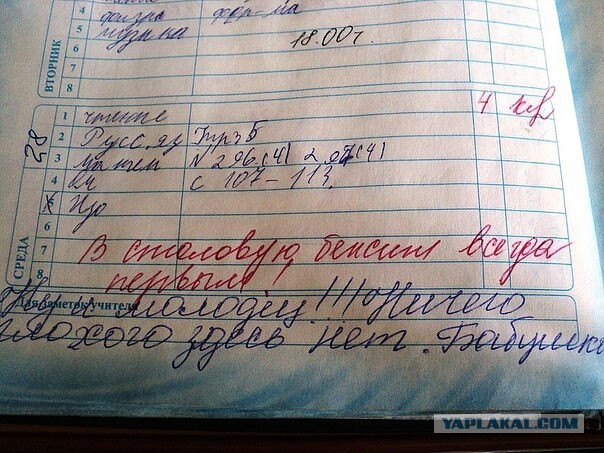 4 физк форма
5 музыка
6 18.00 г.
7
8
ВТОРНИК
28
1 чтение 4
2 Русс. яз Упр 5
3 матем N 296.(4)
4 с 107-113.
5 Изо
6
7 В столовую бежит всегда
8 первым!
СРЕДА
Для заметок учителя
Ну и молодец!!! Ничего
плохого здесь нет. Бабушка
YAPLAKAL.COM